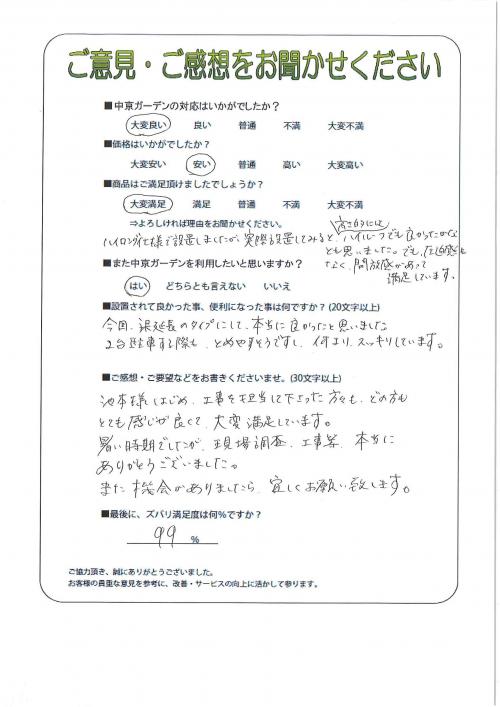 ご意見・ご感想をお聞かせください
■中京ガーデンの対応はいかがでしたか？
大変良い 良い 普通 不満 大変不満
■価格はいかがでしたか？
大変安い 安い 普通 高い 大変高い
■商品はご満足頂けましたでしょうか？
大変満足 満足 普通 不満 大変不満
⇒よろしければ理由をお聞かせください。
ハイロング仕様で設置しましたが、実際設置してみると、高さ的には
ハイルーフでも良かったかな
とも思いました。でも、圧迫感も
なく、開放感があって
満足しています。
■また中京ガーデンを利用したいと思いますか？
はい どちらとも言えない いいえ
■設置されて良かった事、便利になった事は何ですか？(20文字以上)
今回、梁延長のタイプにして、本当に良かったと思いました
2台駐車する際も、とめやすそうですし、何より、スッキリしています。
■ご感想・ご要望などをお書きくださいませ。(30文字以上)
池本様はじめ、工事を担当して下さった方々も、どの方も
とても感じが良くて、大変満足しています。
暑い時期でしたが、現場調査、工事等、本当に
ありがとうございました。
また機会がありましたら、宜しくお願い致します。
■最後に、ズバリ満足度は何％ですか？
99 ％
ご協力頂き、誠にありがとうございました。
お客様の貴重な意見を参考に、改善・サービスの向上に活かして参ります。